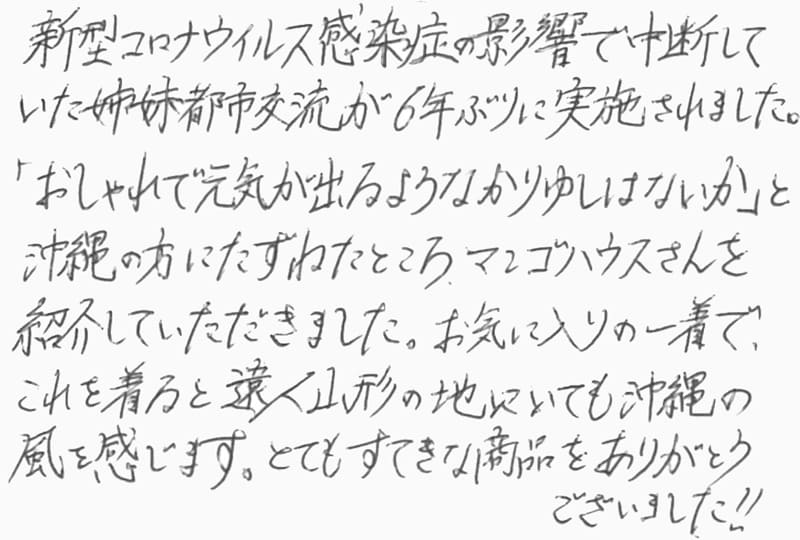 新型コロナウイルス感染症の影響で中断して
いた姉妹都市交流が6年ぶりに実施されました。
「おしゃれで元気が出るようなかりゆしはないか」と
沖縄の方にたずねたところ、マンゴハウスさんを
紹介していただきました。お気に入りの一着で、
これを着ると遠く山形の地にいても沖縄の
風を感じます。とてもすてきな商品をありがとう
ございました!!